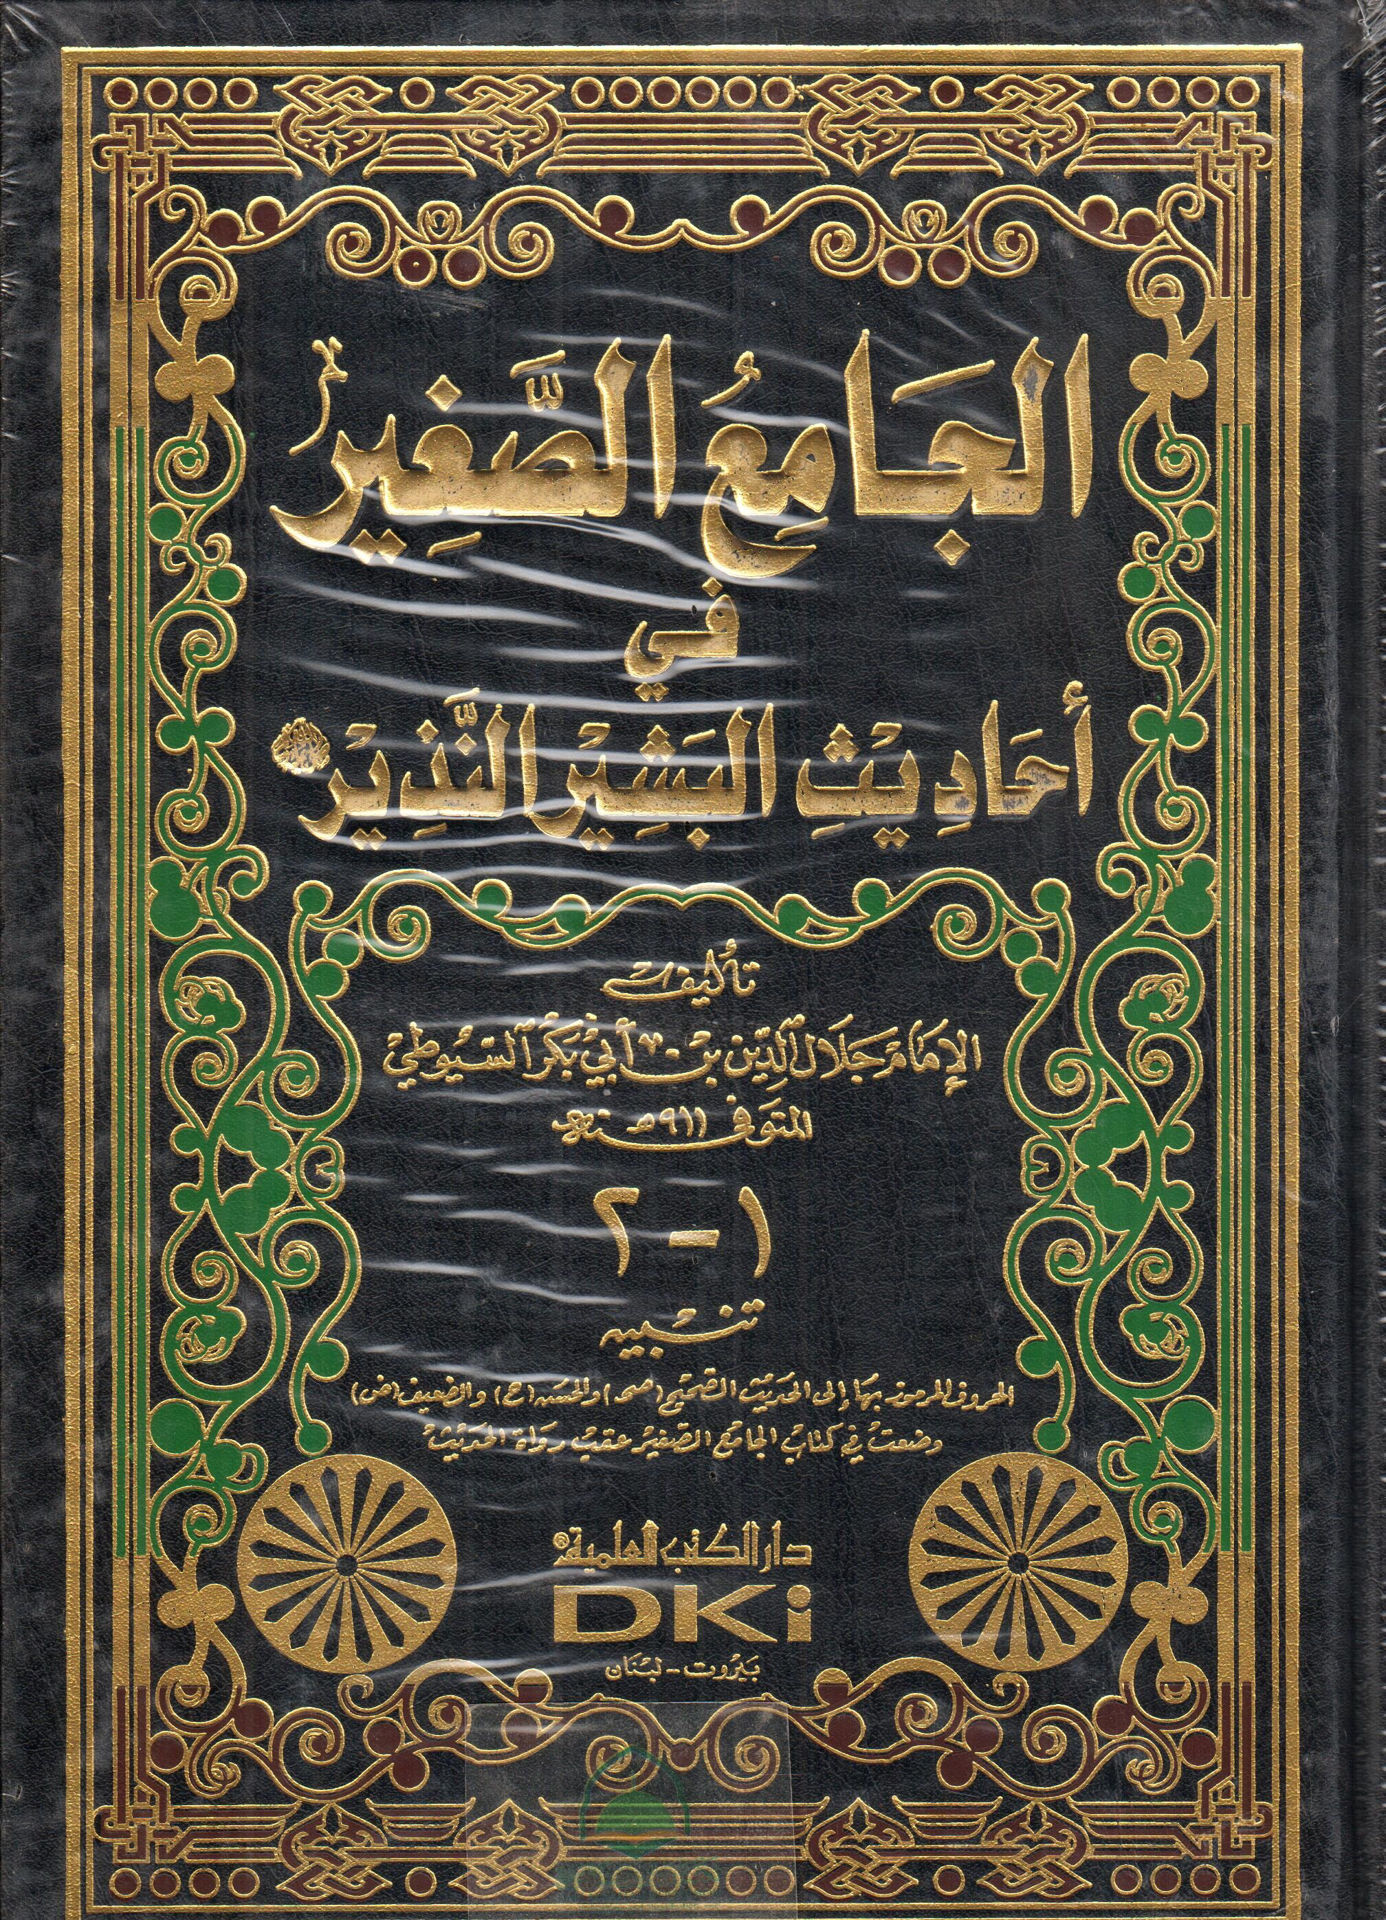 الجَامِعُ الصَّغِيرُ
في
أحَادِيْثِ البَشِيْرِ النَّذِيْرِ ﷺ
تأليف
الإمَام جَلَال الدِّين بن أبي بَكر السّيُوطي
المتوَفى سنة ٩١١هـ
١ - ٢
تنبيه
الحروف المرموز بها إلى الحديث الصحيح (صح) والحسن (ح) والضعيف (ض)
وضعت في كتاب الجامع الصغير عقب رواة الحديث
دار الكتب العلمية®
DKi
بَيْرُوت - لبْنَان